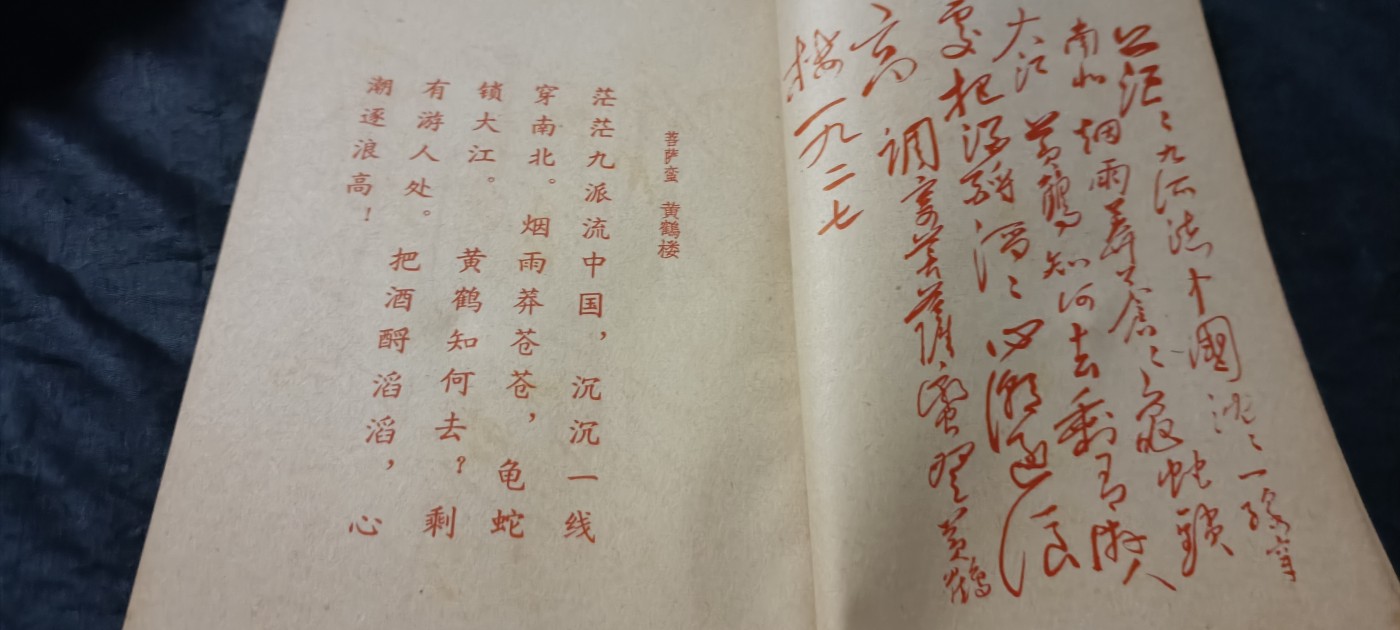 茫〻九派流中國沉〻一線穿
南北烟雨莽蒼〻龜蛇鎖
大江黄鶴知何去剩有游人
處把酒酹滔〻心潮逐浪
高 調寄菩薩蠻登黄鶴
楼一九二七
菩萨蛮 黄鹤楼
茫茫九派流中国，沉沉一线
穿南北。烟雨莽苍苍，龟蛇
锁大江。黄鹤知何去？剩
有游人处。把酒酹滔滔，心
潮逐浪高！